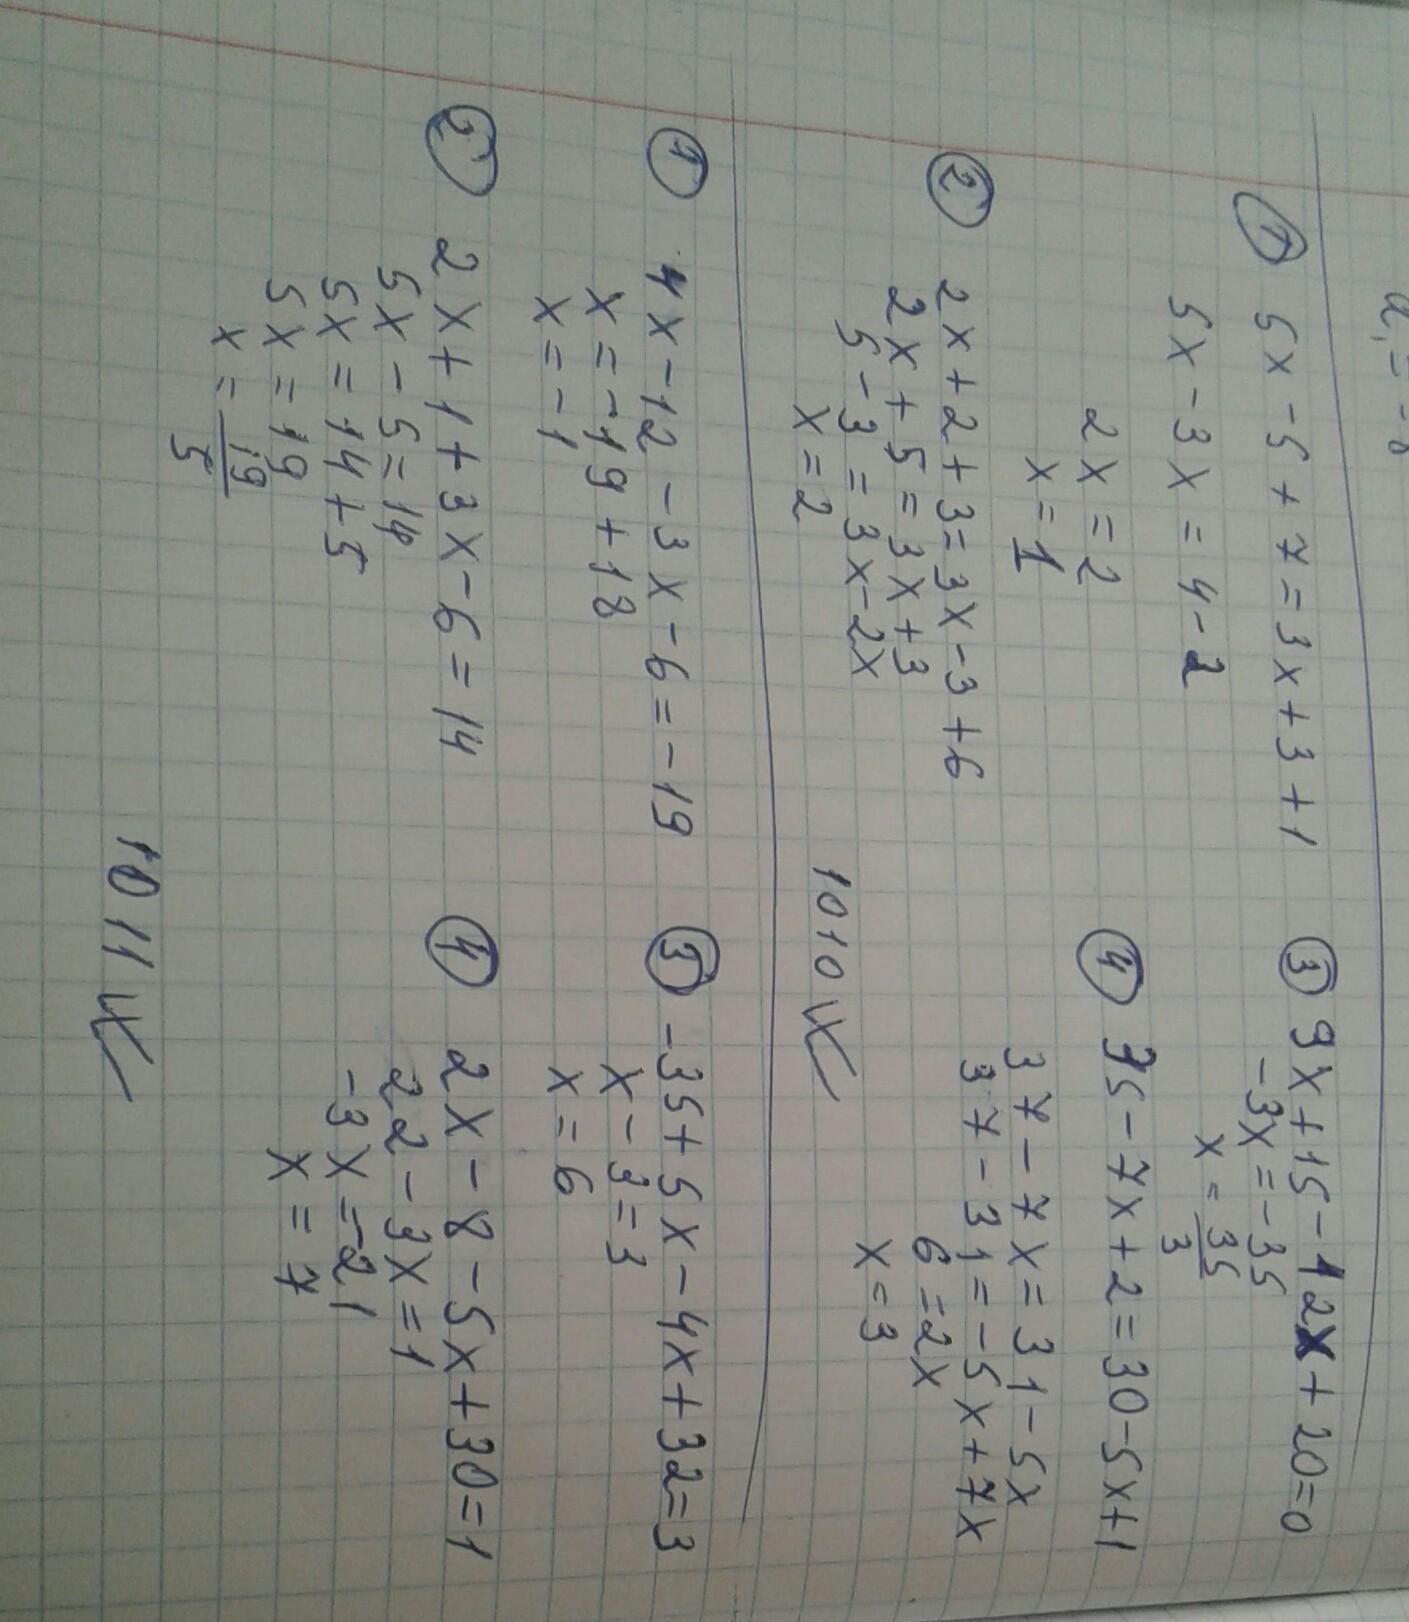 ① 5x-5+7=3x+3+1
5x-3x=4-2
2x=2
x=1
② 2x+2+3=3x-3+6
2x+5=3x+3
5-3=3x-2x
x=2
③ 9x+15-12x+20=0
-3x=-35
x=35/3
④ 35-7x+2=30-5x+1
37-7x=31-5x
37-31=-5x+7x
6=2x
x=3
1010
① 4x-12-3x-6=-19
x=-19+18
x=-1
② 2x+1+3x-6=14
5x-5=14
5x=14+5
5x=19
x=19/5
③ -35+5x-4x+32=3
x-3=3
x=6
④ 2x-8-5x+30=1
22-3x=1
-3x=-21
x=7
1011